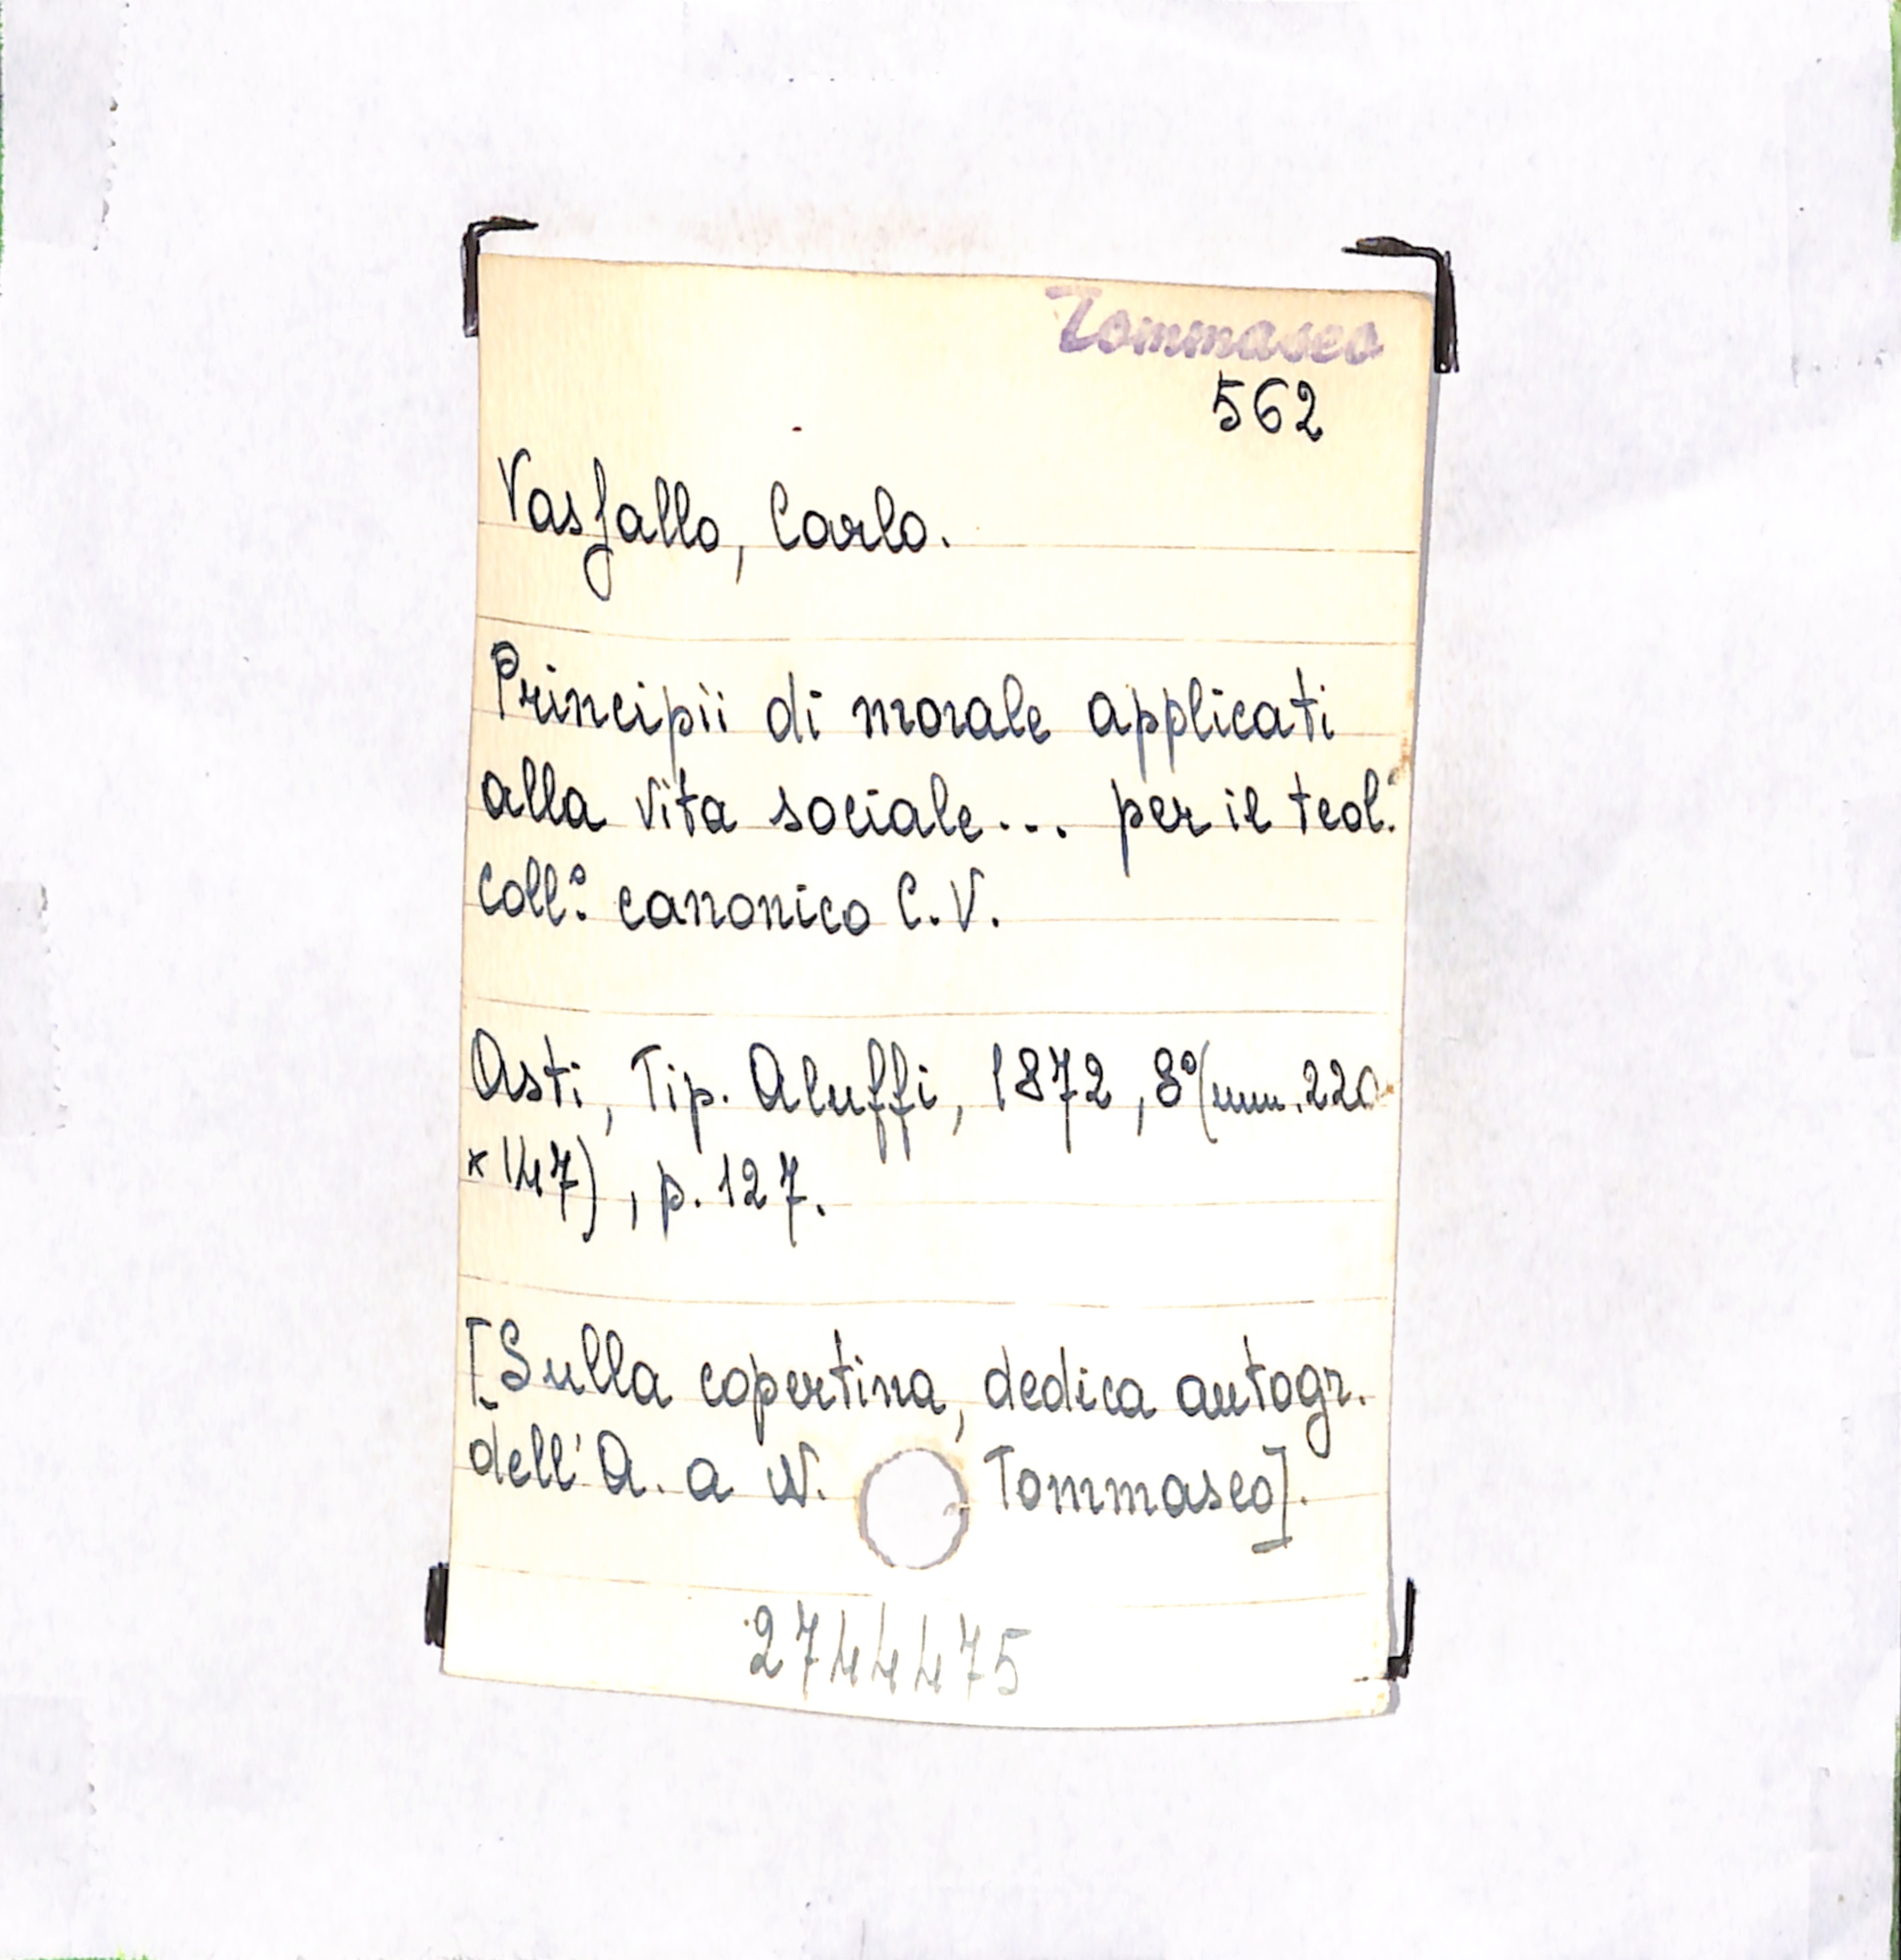 Tommaseo
562
Vassallo, Carlo.
Principii di morale applicati
alla vita sociale... per il teol.º
coll.º canonico C.V.
Asti, Tip. Aluffi, 1872, 8º (mm. 220
×147), p. 127.
[Sulla copertina, dedica autogr.
dell'A. a N. Tommaseo].
2744475